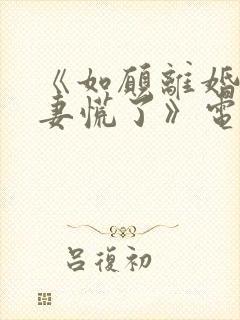 《如願離婚
妻慌了》電
呂復初